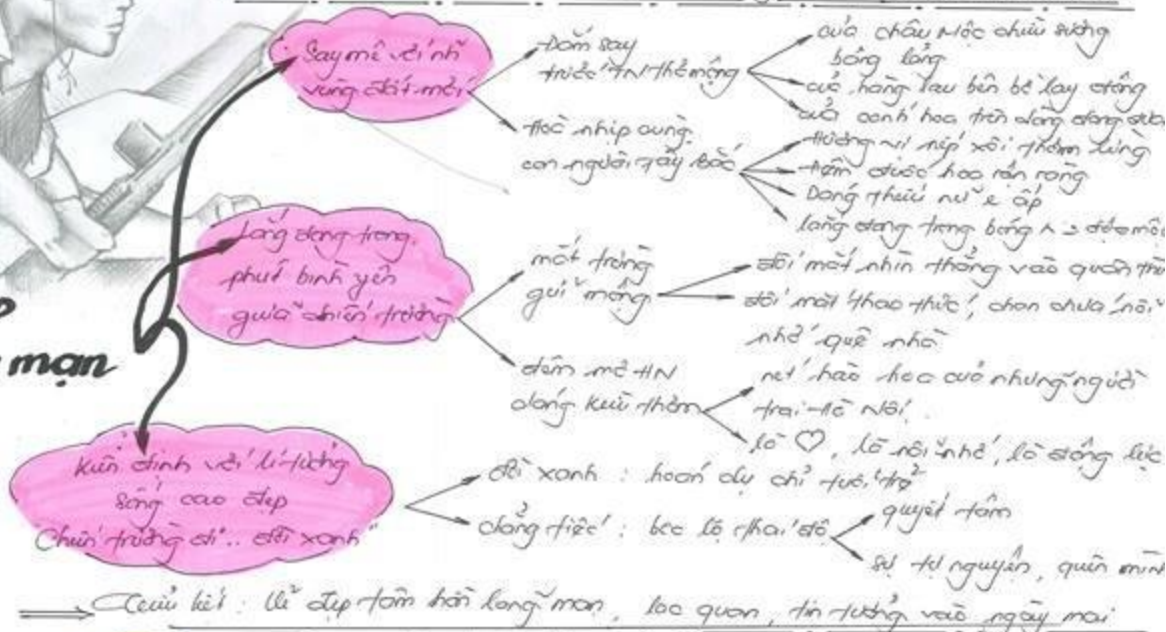 Say mê với những
vùng đất mới
Đắm say
trước TN thơ mộng
của châu Mộc chiều sương
bồng lảng
của hàng lau bên bờ lay động
của cánh hoa trên dòng đong đưa
Hoà nhịp cùng
con người Tây Bắc
Hương vị nếp xôi thơm lừng
đuốc hoa rộn ràng
Dáng thiếu nữ e ấp
lãng đãng trong bóng
Lãng đãng trong
phút bình yên
giữa chiến trường
mắt trừng
gửi mộng
đôi mắt nhìn thẳng vào quân thù
đôi mắt thao thức, chan chứa nỗi
nhớ quê nhà
đêm mơ HN
dáng kiều thơm
nét hào hoa của những người
trai Hà Nội
là ♡, là nỗi nhớ, là động lực
mạn
Kiên định với lí tưởng
sống cao đẹp
"Chiến trường đi.. đời xanh"
đời xanh : hoán dụ chỉ tuổi trẻ
chẳng tiếc : bộc lộ thái độ
quyết tâm
sự tự nguyện, quên mình
⇒ Tiểu kết : Vẻ đẹp tâm hồn lãng mạn, lạc quan, tin tưởng vào ngày mai